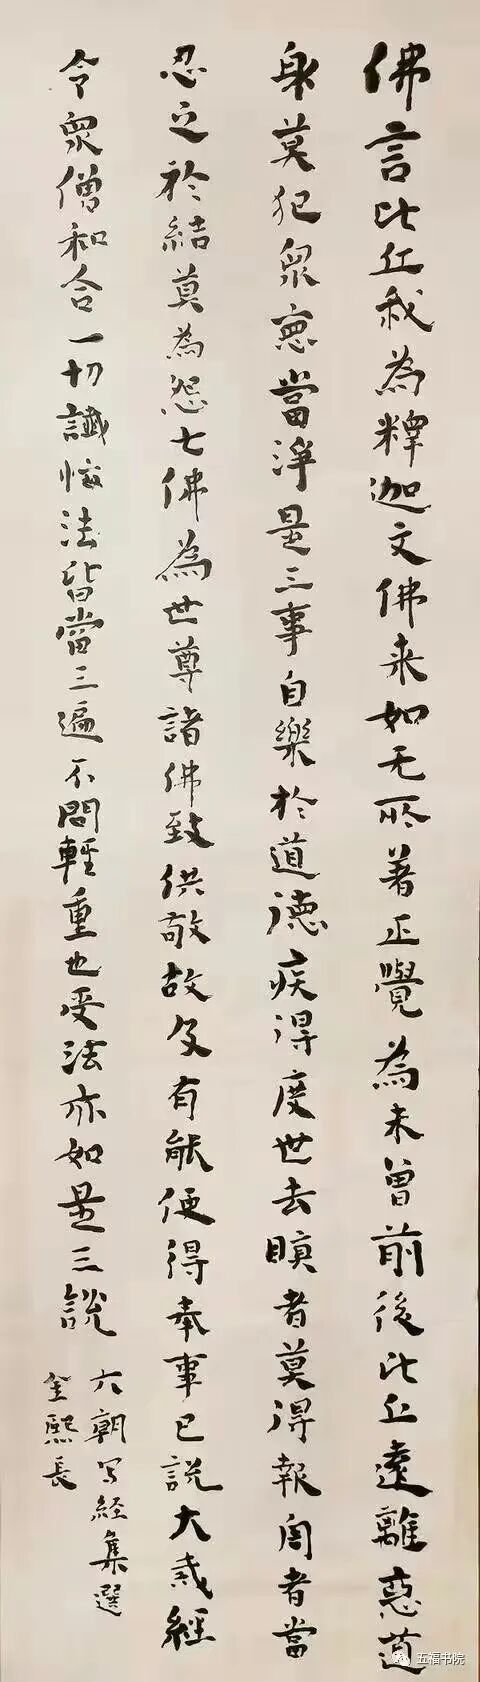 佛言比丘我為釋迦文佛来如无所著正覺為未曾前後比丘遠離惡道
身莫犯眾惡當淨是三事自樂於道德疾得度世去瞋者莫得報闍者當
忍之於結莫為怨七佛為世尊諸佛致供敬故及有能便得奉事已說大戒經
令眾僧和合一切懺悔法皆當三遍不問輕重也受法亦如是三說
六朝写経集選
金熙長
五福书院